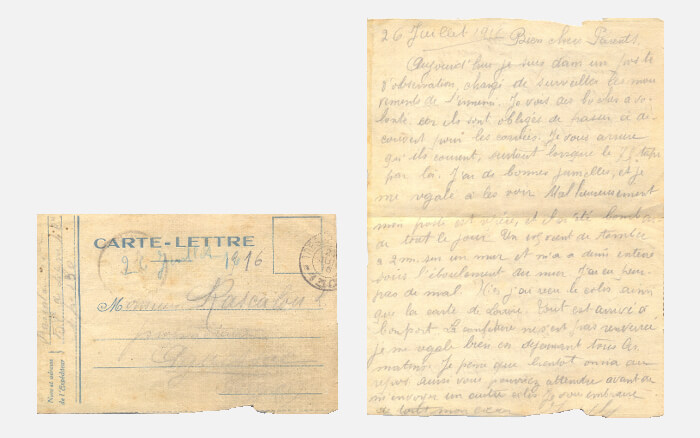 CARTE-LETTRE
26 Juillet 1916
Monsieur Rascalou
Nom et adresse
de l'Expéditeur
26 Juillet 1916 Bien chers Parents,
Aujourd'hui je suis dans un poste
d'observation, chargé de surveiller les mou
vements de l'ennemi. Je vois des boches a vo
lonté, car ils sont obligés de passer à dé
couvert pour les corvées. Je vous assure
qu'ils courent, surtout lorsque le 75 tape
par là. J'ai de bonnes jumelles, et je
me régale à les voir Malheureusement
mon poste est repéré et il a été bombar
dé tout le jour. Un obus vient de tomber
a 2 m. sur un mur et m'a a demi enterré
sous l'éboulement du mur. J'ai eu peur
pas de mal. Hier j'ai reçu le colis ainsi
que la carte de Louise. Tout est arrivé à
bon port La confiture ne s'est pas renversée
je me régale bien en déjeunant tous les
matins. Je pense que bientôt on ira au
repos aussi vous pouvez attendre avant de
m'envoyer un autre colis. Je vous embrasse
de tout mon cœur